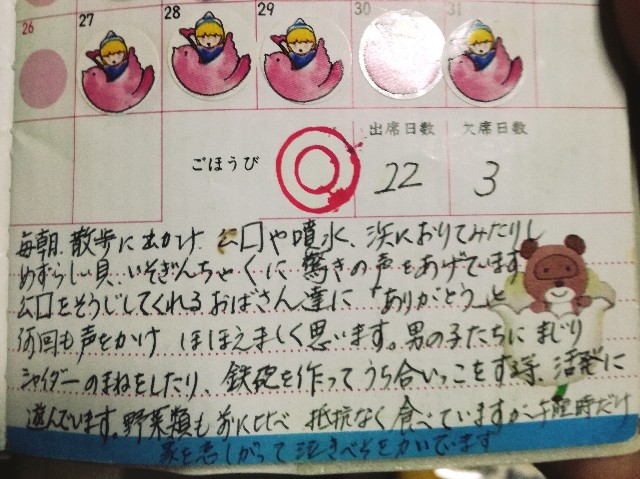 26 27 28 29 30 31
出席日数 欠席日数
ごほうび 22 3
毎朝、散歩に出かけ、公口や噴水、浜におりてみたりし
めずらしい貝、いそぎんちゃくに驚きの声をあげています
公口をそうじしてくれるおばさん達に「ありがとう」と
何回も声をかけ ほほえましく思います。男の子たちにまじり
シャイダーのまねをしたり、鉄砲を作ってうち合いっこをする等、活発に
遊んでいます。野菜類も前に比べ 抵抗なく食べていますが〜午睡時だけ
家を恋しがって泣きべそをかいてます